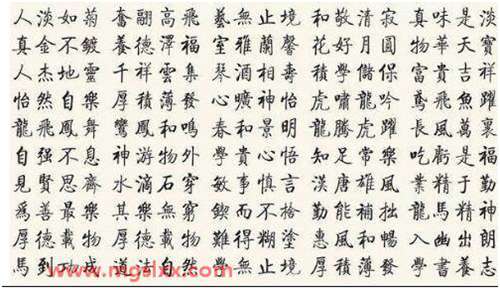 人淡如菊 奮翮高飛 藝無止境 和敬清寂 真味是淡
真金不鍍 養德澤福 室雅蘭馨 花好月圓 物華天寶
人杰地靈 千祥雲集 琴酒相壽 積學儲保 富貴吉祥
怡然自樂 厚積薄發 心曠神怡 虎嘯龍吟 鳶飛魚躍
龍飛鳳舞 鸞鳳和鳴 春和景明 龍騰虎躍 長風萬裏
自强不息 神游物外 學貴心悟 知足常樂 吃虧是福
見賢思齊 水滴石穿 敏事慎言 漢唐雄風 業精于勤
爲善最樂 其樂無窮 鍥而不捨 勤能補拙 龍馬精神
厚德載物 厚德載物 難得糊塗 惠風和暢 入幽出朗
馬到功成 道法自然 學無止境 厚積薄發 學書勵志
www.mgslxx.com